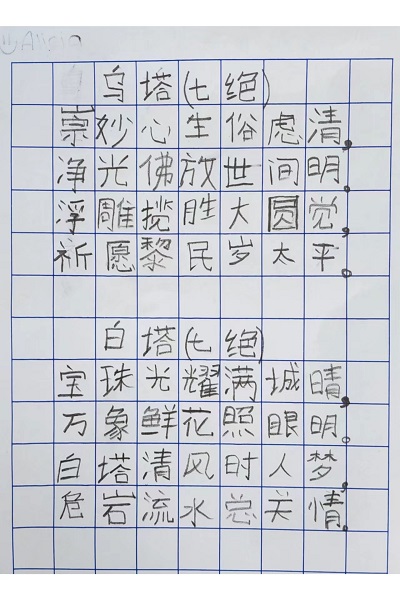 乌塔(七绝)
崇妙心生俗虑清,
净光佛放世间明。
浮雕揽胜大圆觉,
祈愿黎民岁太平。
白塔(七绝)
宝珠光耀满城晴,
万象鲜花照眼明。
白塔清风时人梦,
危岩流水总关情。